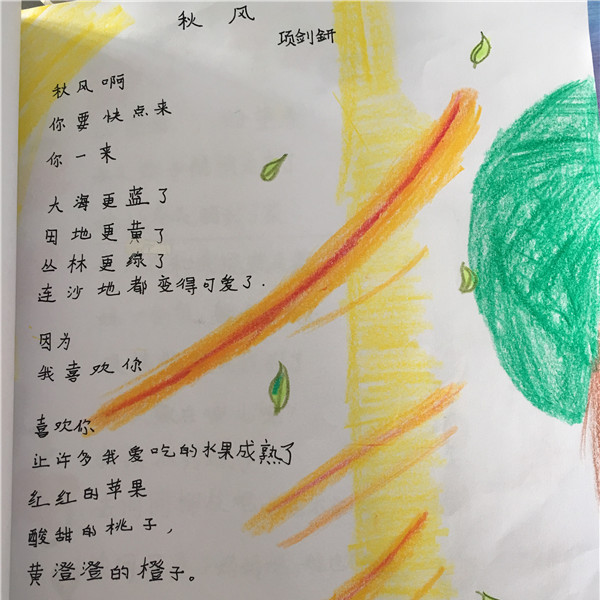 秋风
项剑妍
秋风啊
你要快点来
你一来
大海更蓝了
田地更黄了
丛林更绿了
连沙地都变得可爱了.
因为
我喜欢你
喜欢你
让许多我爱吃的水果成熟了
红红的苹果
酸甜的桃子，
黄澄澄的橙子。